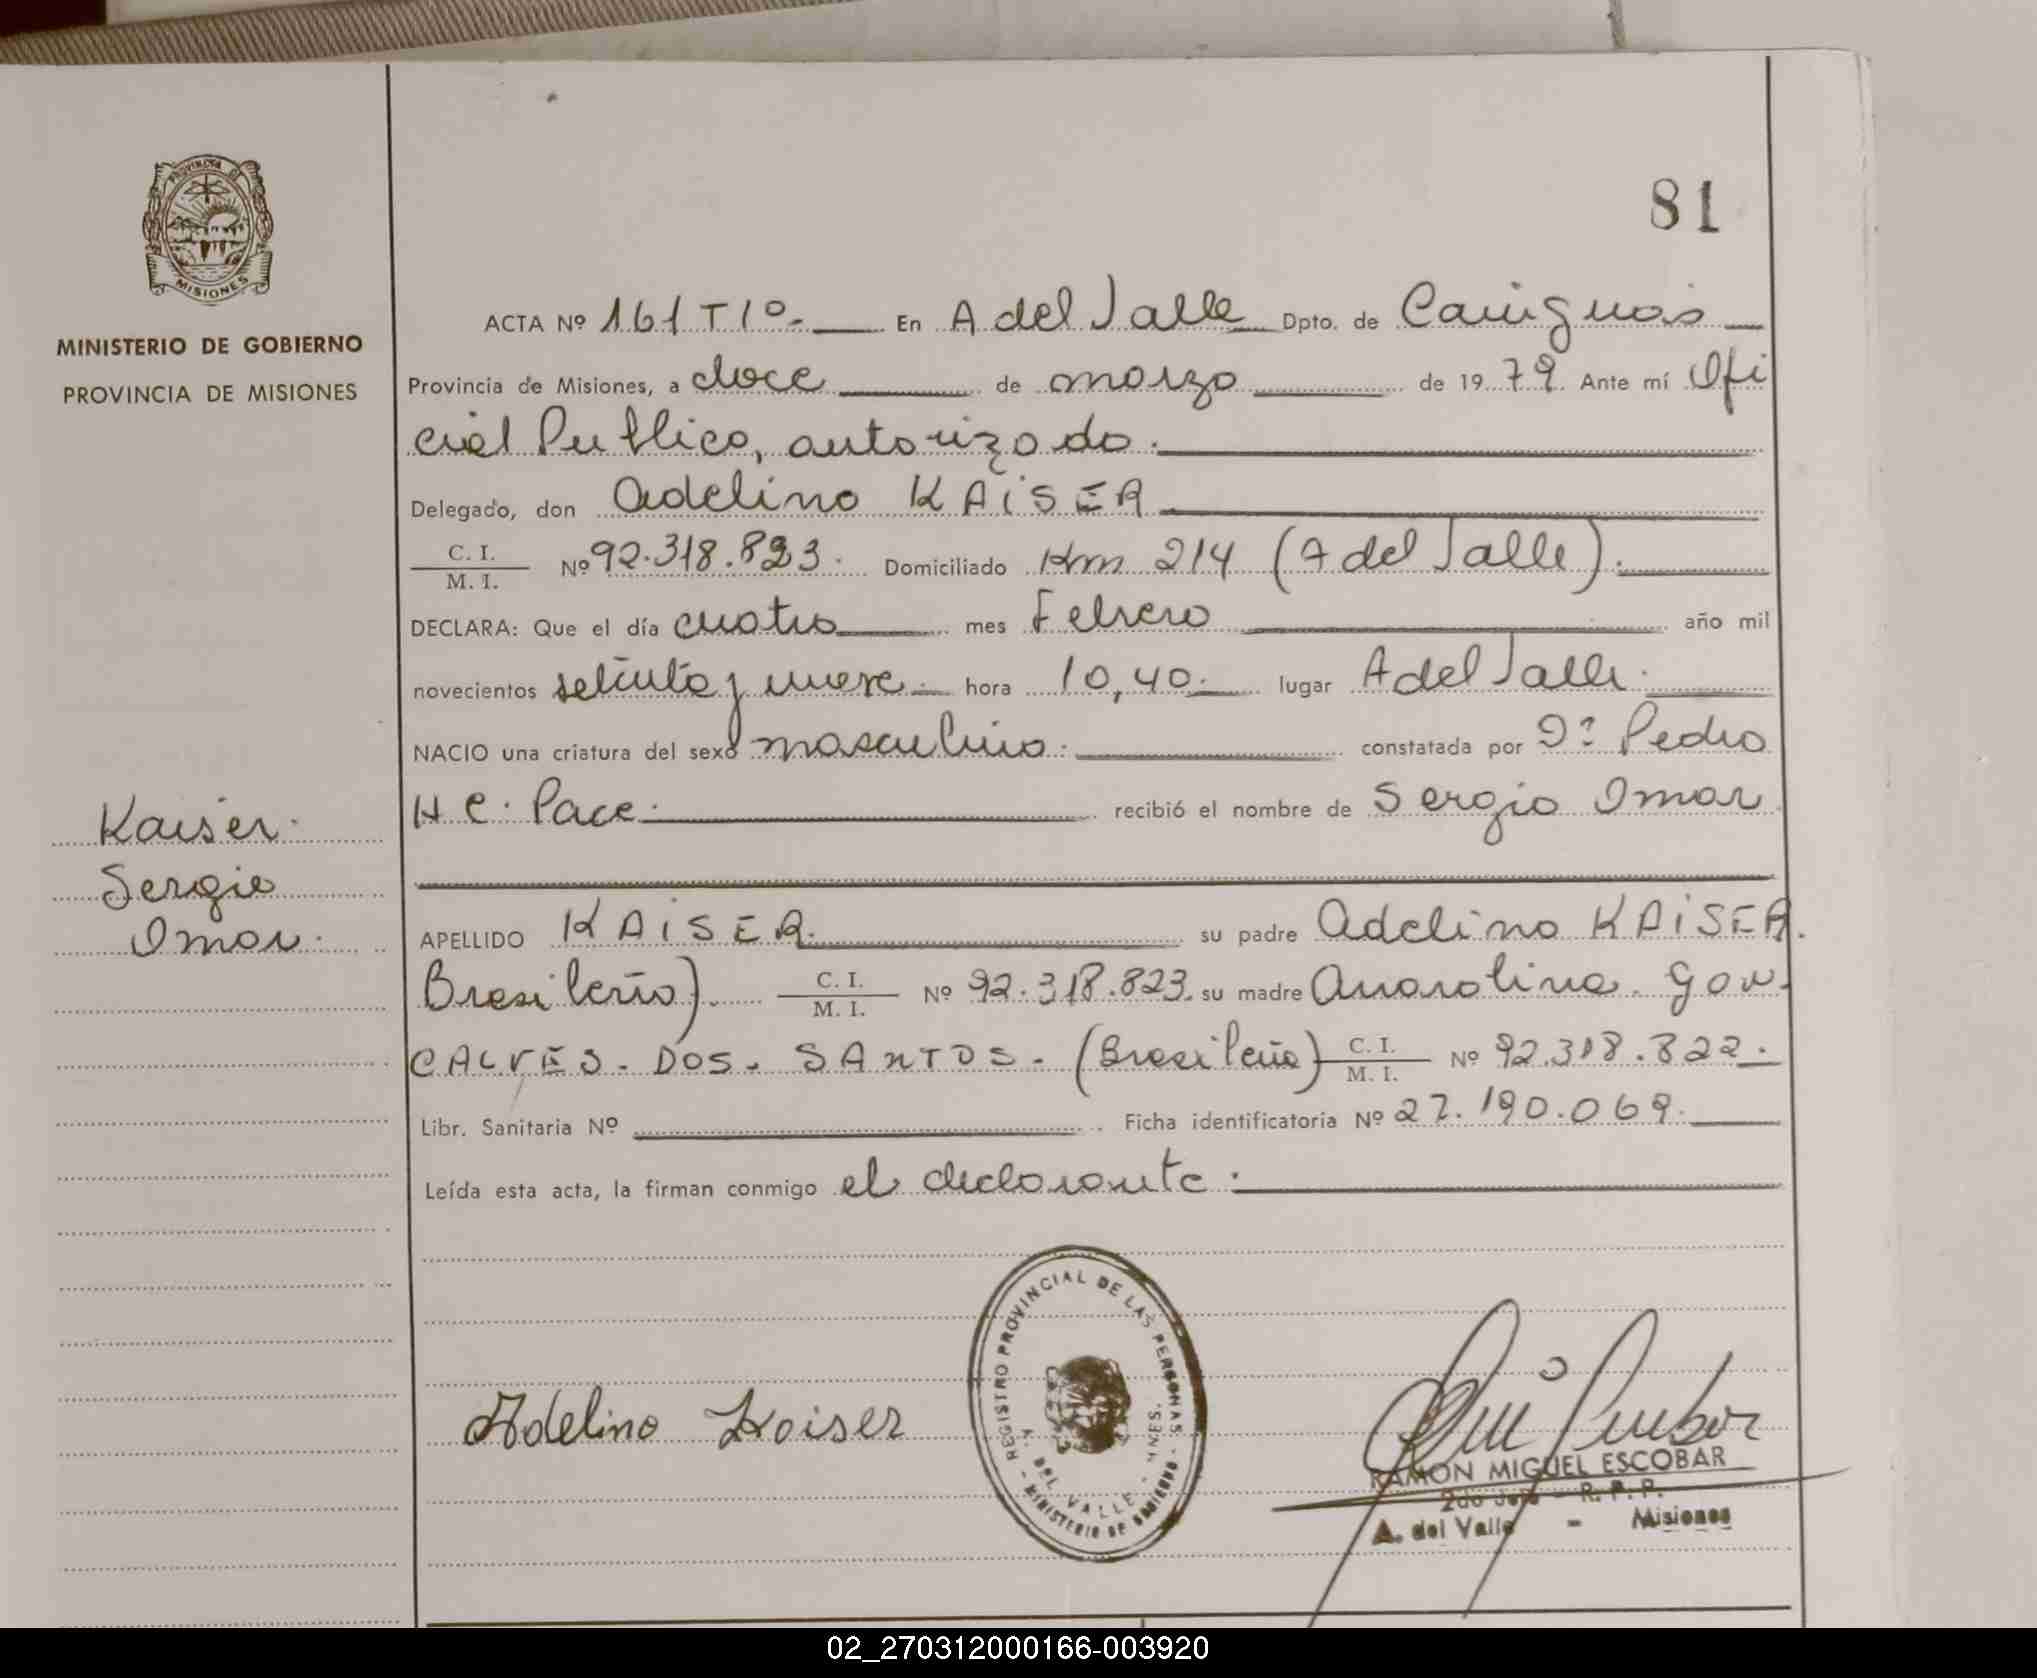 81
PROVINCIA DE
MISIONES
MINISTERIO DE GOBIERNO
PROVINCIA DE MISIONES
ACTA Nº 161 T 1º.- En A del Valle Dpto. de Cainguás
Provincia de Misiones, a doce de marzo de 1979. Ante mí Ofi
cial Publico, autorizado.
Delegado, don Adelino KAiSER
C. I. / M. I. Nº 92.318.823. Domiciliado Km 214 (A del Valle).
DECLARA: Que el día cuatro mes Febrero año mil
novecientos setenta y nueve hora 10,40. lugar A del Valle.
NACIO una criatura del sexo masculino. constatada por Dº Pedro
H C. Pace. recibió el nombre de Sergio Omar
Kaiser.
Sergio
Omar.
APELLIDO KAiSER. su padre Adelino KAiSER.
Brasileño). C. I. / M. I. Nº 92.318.823. su madre Anarolina. Gon
CALVES. DOS. SANTOS. (Brasileña) C. I. / M. I. Nº 92.318.822.
Libr. Sanitaria Nº Ficha identificatoria Nº 27.190.069.
Leída esta acta, la firman conmigo el declarante.
Adelino Kaiser
REGISTRO PROVINCIAL DE LAS PERSONAS
A. DEL VALLE - MNES.
MINISTERIO DE GOBIERNO
RAMON MIGUEL ESCOBAR
2do Jefe - R. P. P.
A. del Valle - Misiones
02_270312000166-003920